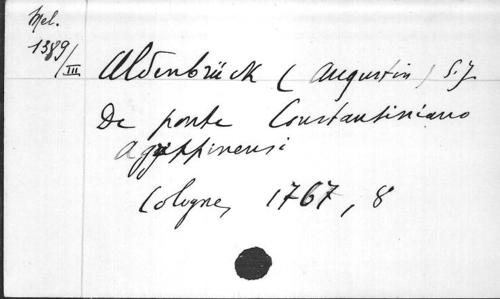 Mel.
1389/III
Aldenbrück (Augustin) S.J.
De ponte Constantiniano
Agrippinensi
Cologne, 1767, 8